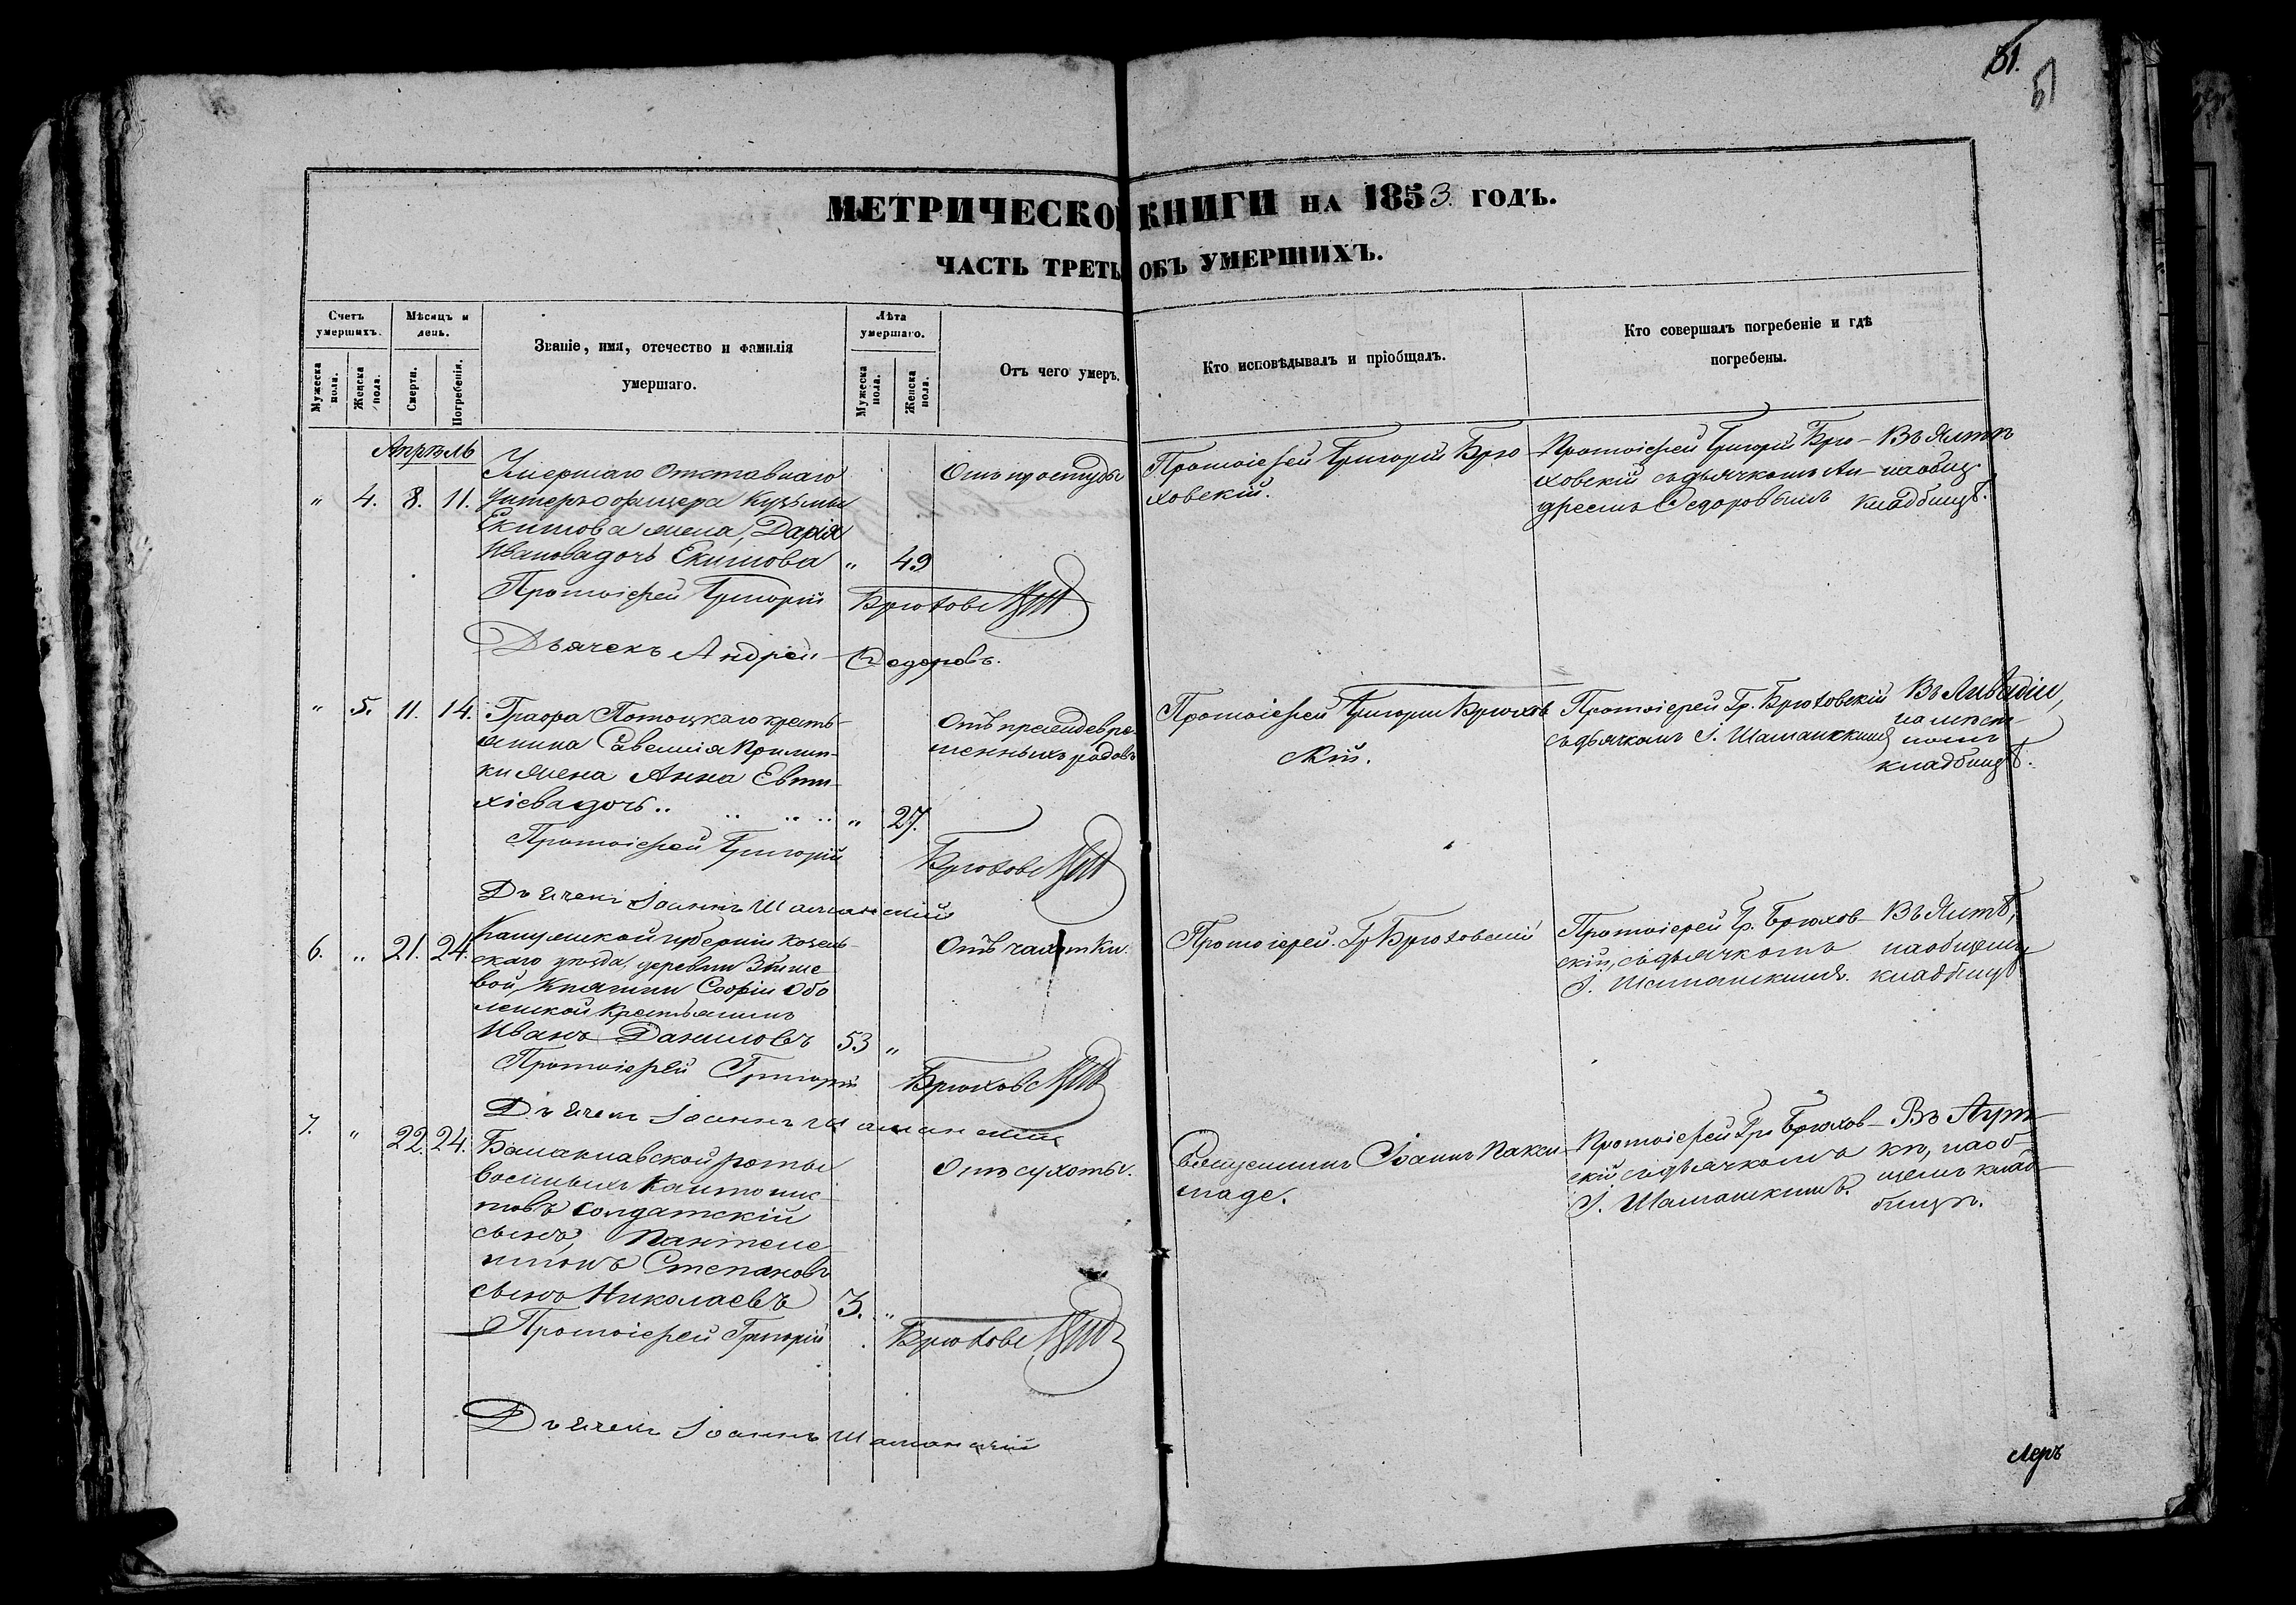 81.
МЕТРИЧЕСКО КНИГИ НА 1853. ГОДЪ.
ЧАСТЬ ТРЕТЬ ОБЪ УМЕРШИХЪ.
Счетъ умершихъ.
Мужеска пола.
Женска пола.
Мѣсяцъ и день.
Смерти.
Погребенія.
Званіе, имя, отечество и фамилія
умершаго.
Лѣта умершаго.
Мужеска пола.
Женска пола.
Отъ чего умеръ.
Кто исповѣдывалъ и пріобщалъ.
Кто совершалъ погребеніе и гдѣ
погребены.
Апрѣль
" 4. 8. 11.
Умершаго Отставнаго
Унтеръ офицера Кузьмы
Екимова жена, Дарія
Иванова дочь Екимова " 49
Отъ простуды
Протоіерей Григорій Брю-
ховскій.
Протоіерей Григорій Брю-
ховскій съ дьячкомъ Ан-
дреемъ Ѳедоровымъ
Въ Ялтѣ
на общ.
кладбищѣ.
Протоіерей Григорій Брюховскій
Дьячекъ Андрей Ѳедоровъ.
" 5. 11. 14.
Графа Потоцкаго кресть-
янина Савелія
жена Анна Евти-
хіева дочь .. .. .. .. " 27.
Отъ преждевре-
менныхъ родовъ
Протоіерей Григорій Брюхов-
скій.
Протоіерей Гр. Брюховскій
съ дьячкомъ І. Шаманскимъ
Въ Ливадіи,
на мѣст-
номъ
кладбищѣ.
Протоіерей Григорій Брюховскій
Дьячекъ Іоаннъ Шаманскій
6. " 21. 24.
Калужской губерніи Козель-
скаго уѣзда, деревни
вой, Княгини Софіи Обо-
ленской Крестьянинъ
Иванъ Даниловъ 53 "
Отъ чахотки.
Протоіерей Гр. Брюховскій
Протоіерей Гр. Брюхов-
скій, съ дьячкомъ
І. Шаманскимъ.
Въ Ялтѣ,
на общемъ
кладбищѣ
Протоіерей Григорій Брюховскій
Дьячекъ Іоаннъ Шаманскій
7. " 22. 24.
Балаклавской роты
военныхъ Кантонис-
товъ солдатскій
сынъ, Пантеле-
имонъ Степановъ
сынъ Николаевъ 3. "
Отъ сухоты.
Священникъ Іоаннъ
Протоіерей Гр. Брюхов-
скій съ дьячкомъ
І. Шаманскимъ.
Въ Аут-
кѣ, на об-
щемъ клад-
бищѣ.
Протоіерей Григорій Брюховскій
Дьячекъ Іоаннъ Шаманскій